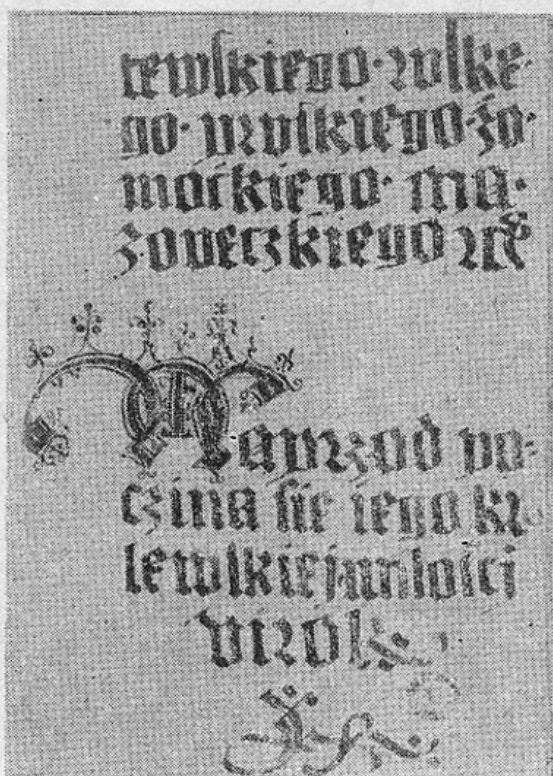 tewſkiego· ruſke·
go· pruſkiego· żo·
moickiego· ma·
zoveczkiego ⁊c
Naprzod po-
czina ſie iego kr
lewſkiej miloſci
virok